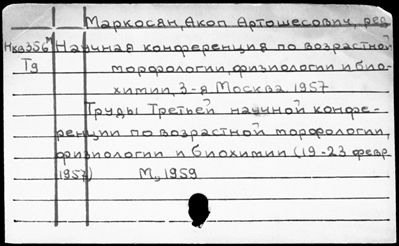 Маркосян, Акоп Артошесович, ред
Нка356м Научная конференция по возрастной
Тд морфологии, физиологии и био-
химии, 3-я Москва. 1957
Труды Третьей научной конфе-
ренции по возрастной морфологии,
физиологии и биохимии (19-23 февр
1957) М., 1959